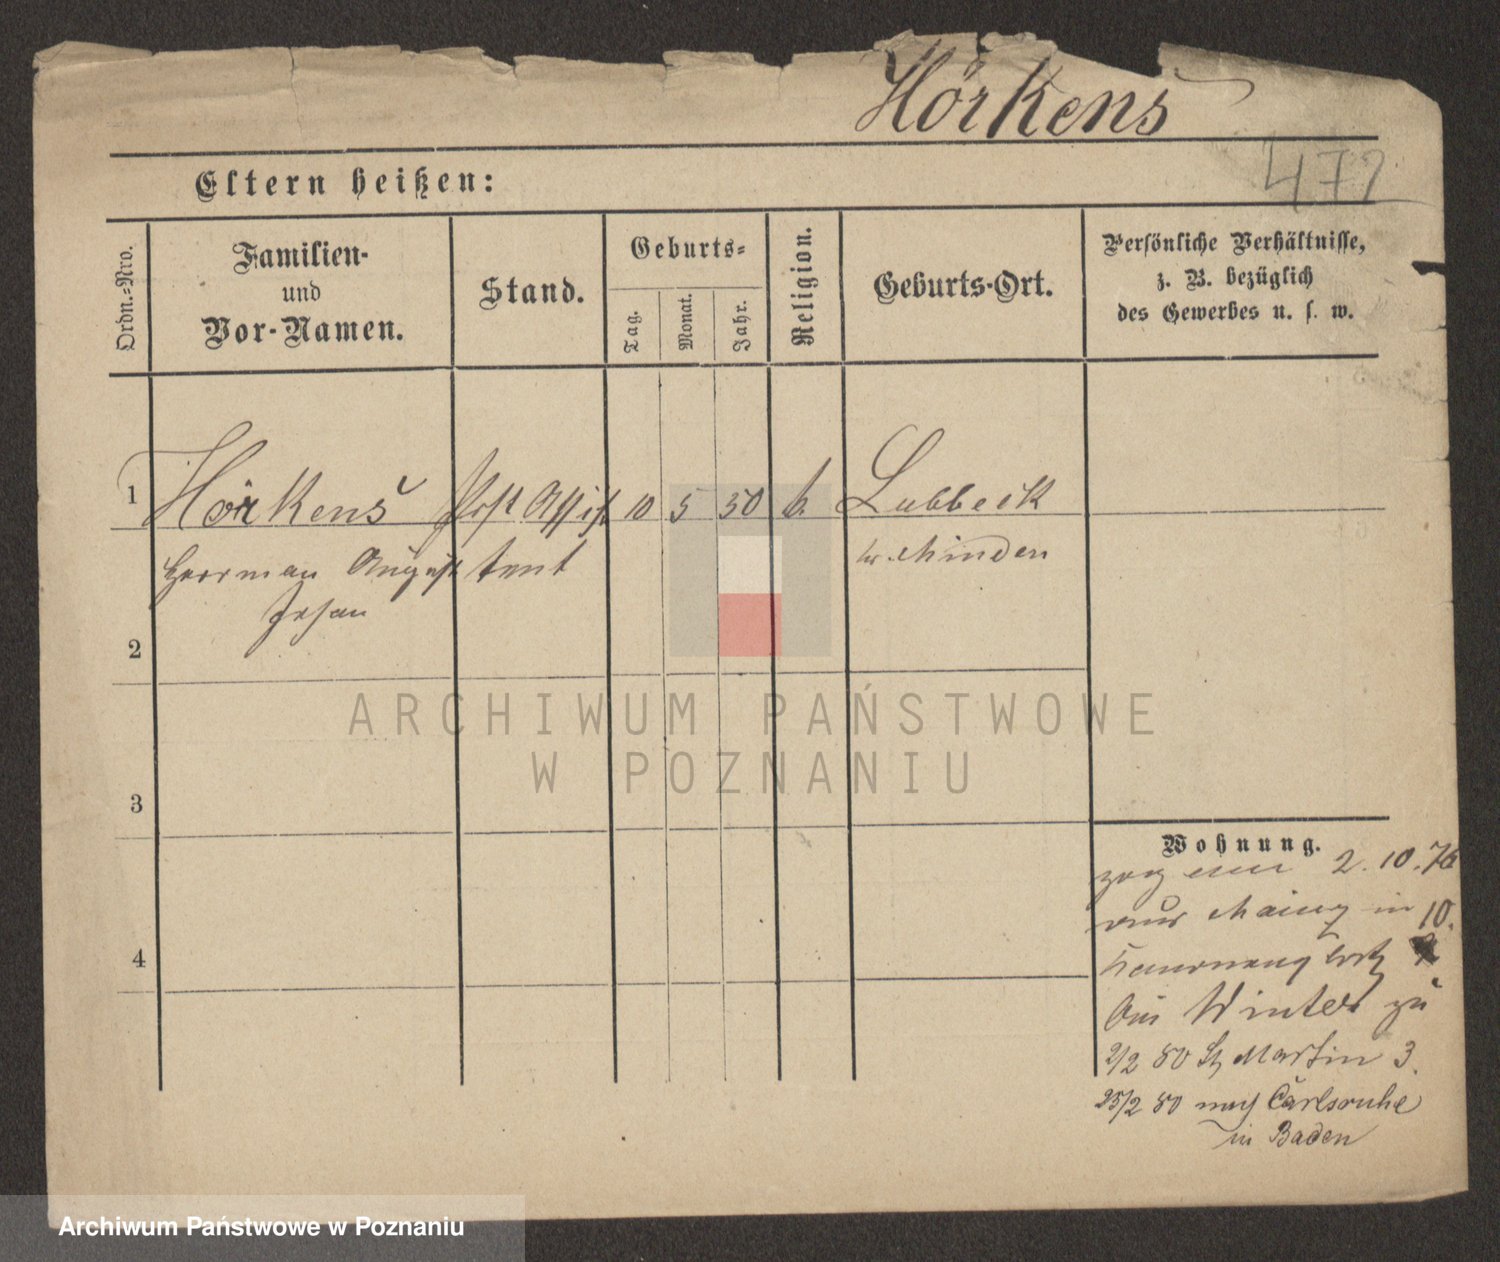 Hörkens
472
Eltern heißen:
Ordn.-Nro.
Familien-
und
Vor-Namen.
Stand.
Geburts-
Tag.
Monat.
Jahr.
Religion.
Geburts-Ort.
Persönliche Verhältnisse,
z. B. bezüglich
des Gewerbes u. s. w.
1 Hörkens Post Assis 10 5 50 k. Lubbeck
Herrman August tent Kr. Minden
Johan
2
3
4
ARCHIWUM PAŃSTWOWE
W POZNANIU
Wohnung.
zog ein 2. 10. 76
aus Mainz in 10.
bei Winter zu
2/2 80 St Martin 3.
25/2 80 nach Carlsruhe
in Baden
Archiwum Państwowe w Poznaniu